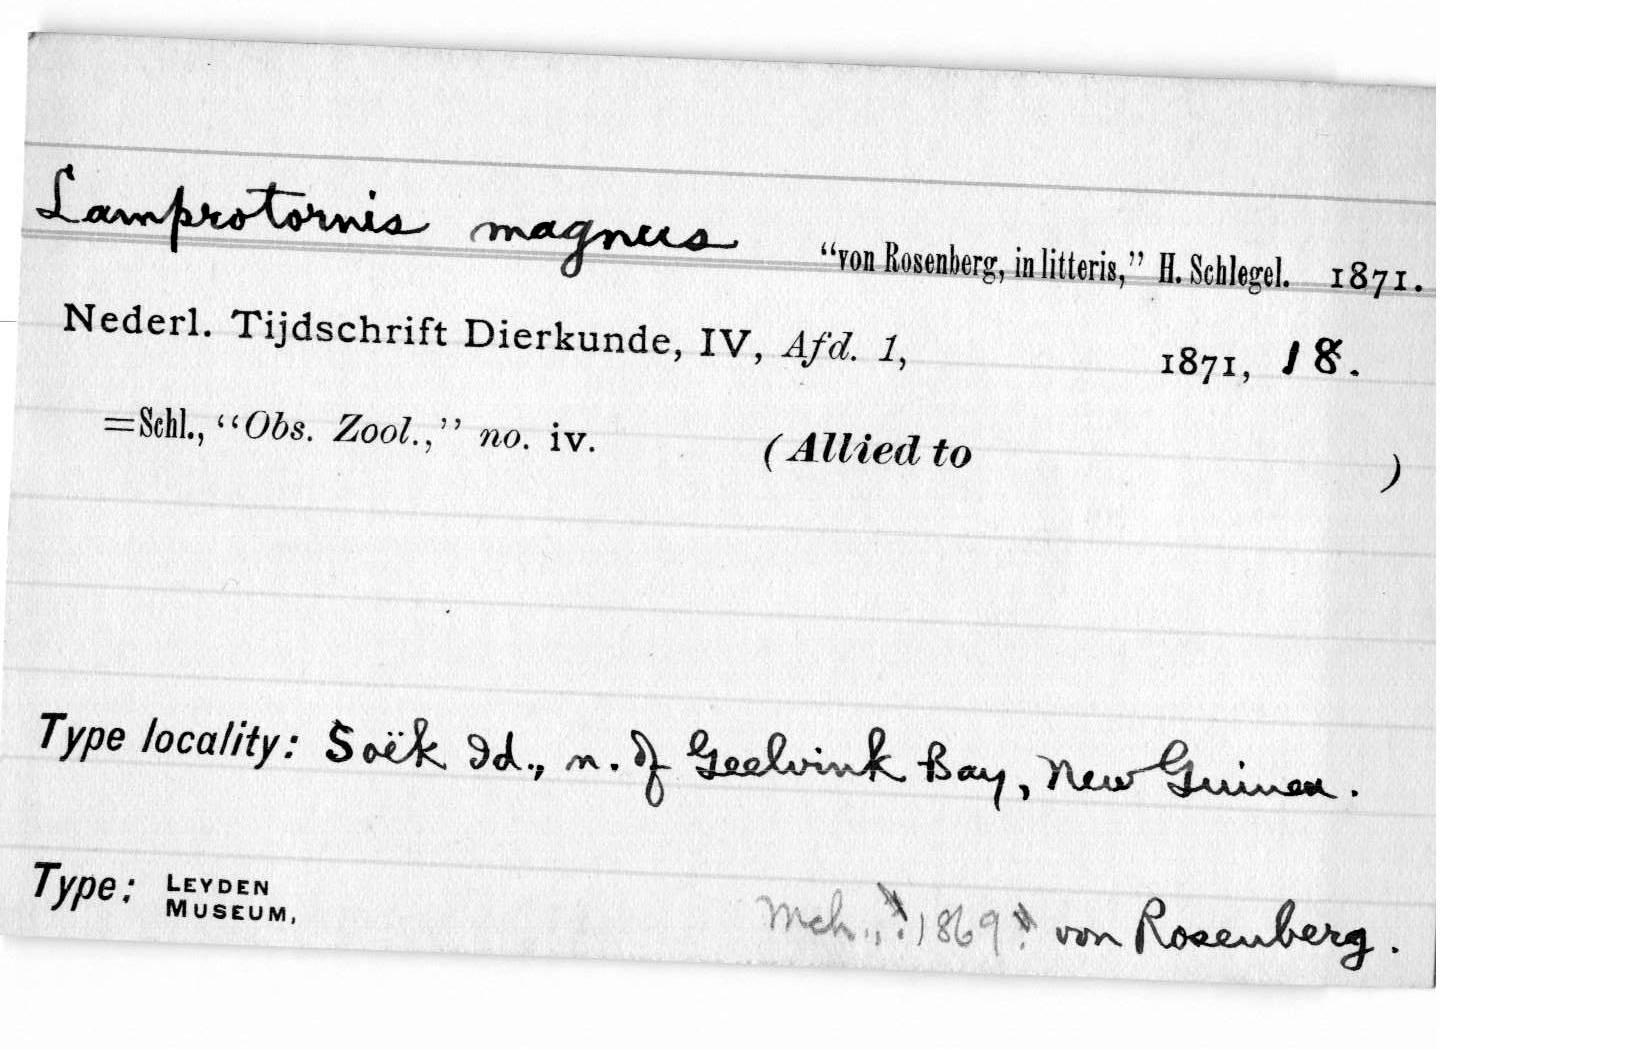 Lamprotornis magnus “von Rosenberg, in litteris,” H. Schlegel. 1871.
Nederl. Tijdschrift Dierkunde, IV, Afd. 1, 1871, 18.
=Schl., “Obs. Zool.,” no. iv. (Allied to )
Type locality: Soëk Id., n. of Geelvink Bay, New Guinea.
Type: LEYDEN MUSEUM, Mch., 1869 von Rosenberg.